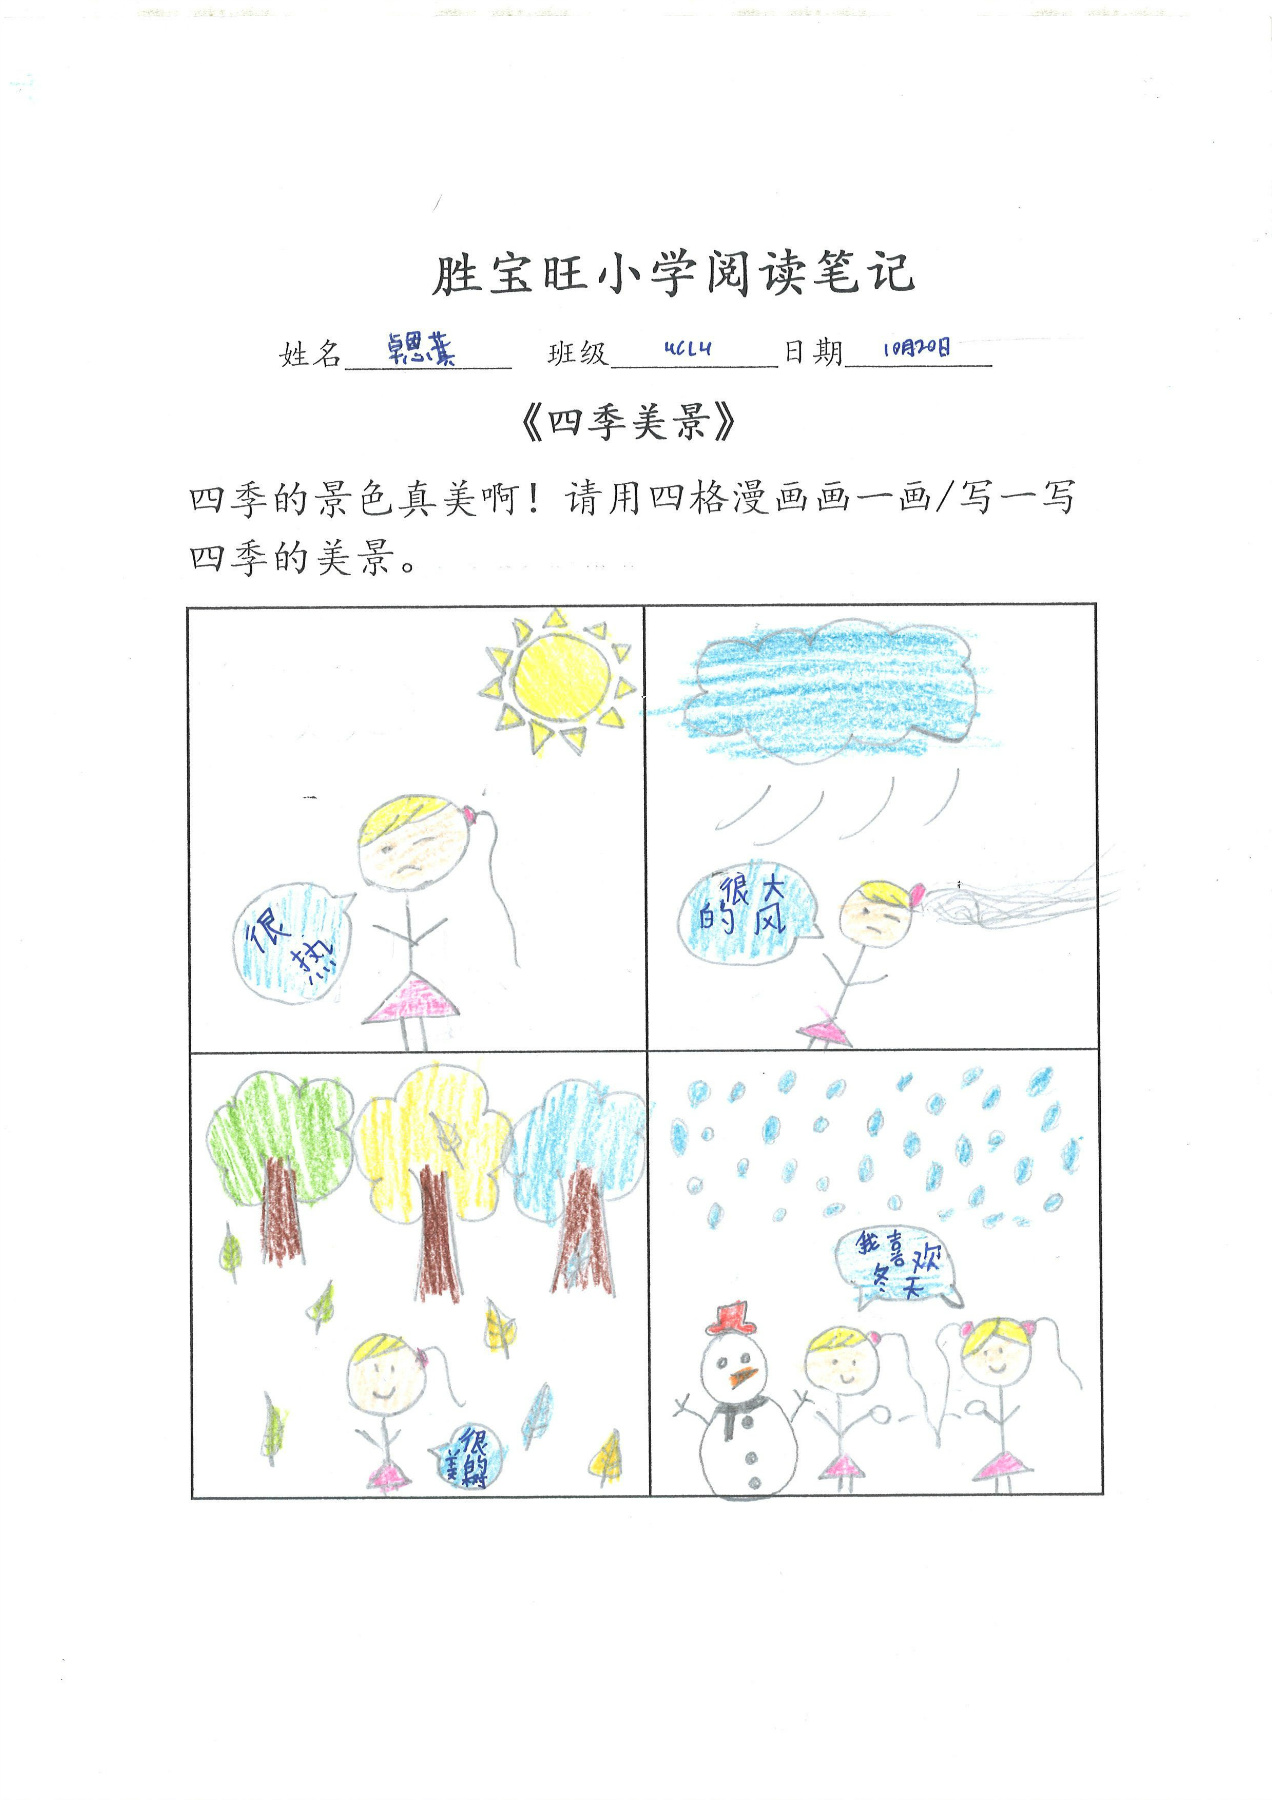 胜宝旺小学阅读笔记
姓名 卓恩蕻 班级 4CL4 日期 10月20日
《四季美景》
四季的景色真美啊！请用四格漫画画一画/写一写
四季的美景。
很
热
很大
的风
很
美的
树
我喜欢
冬天